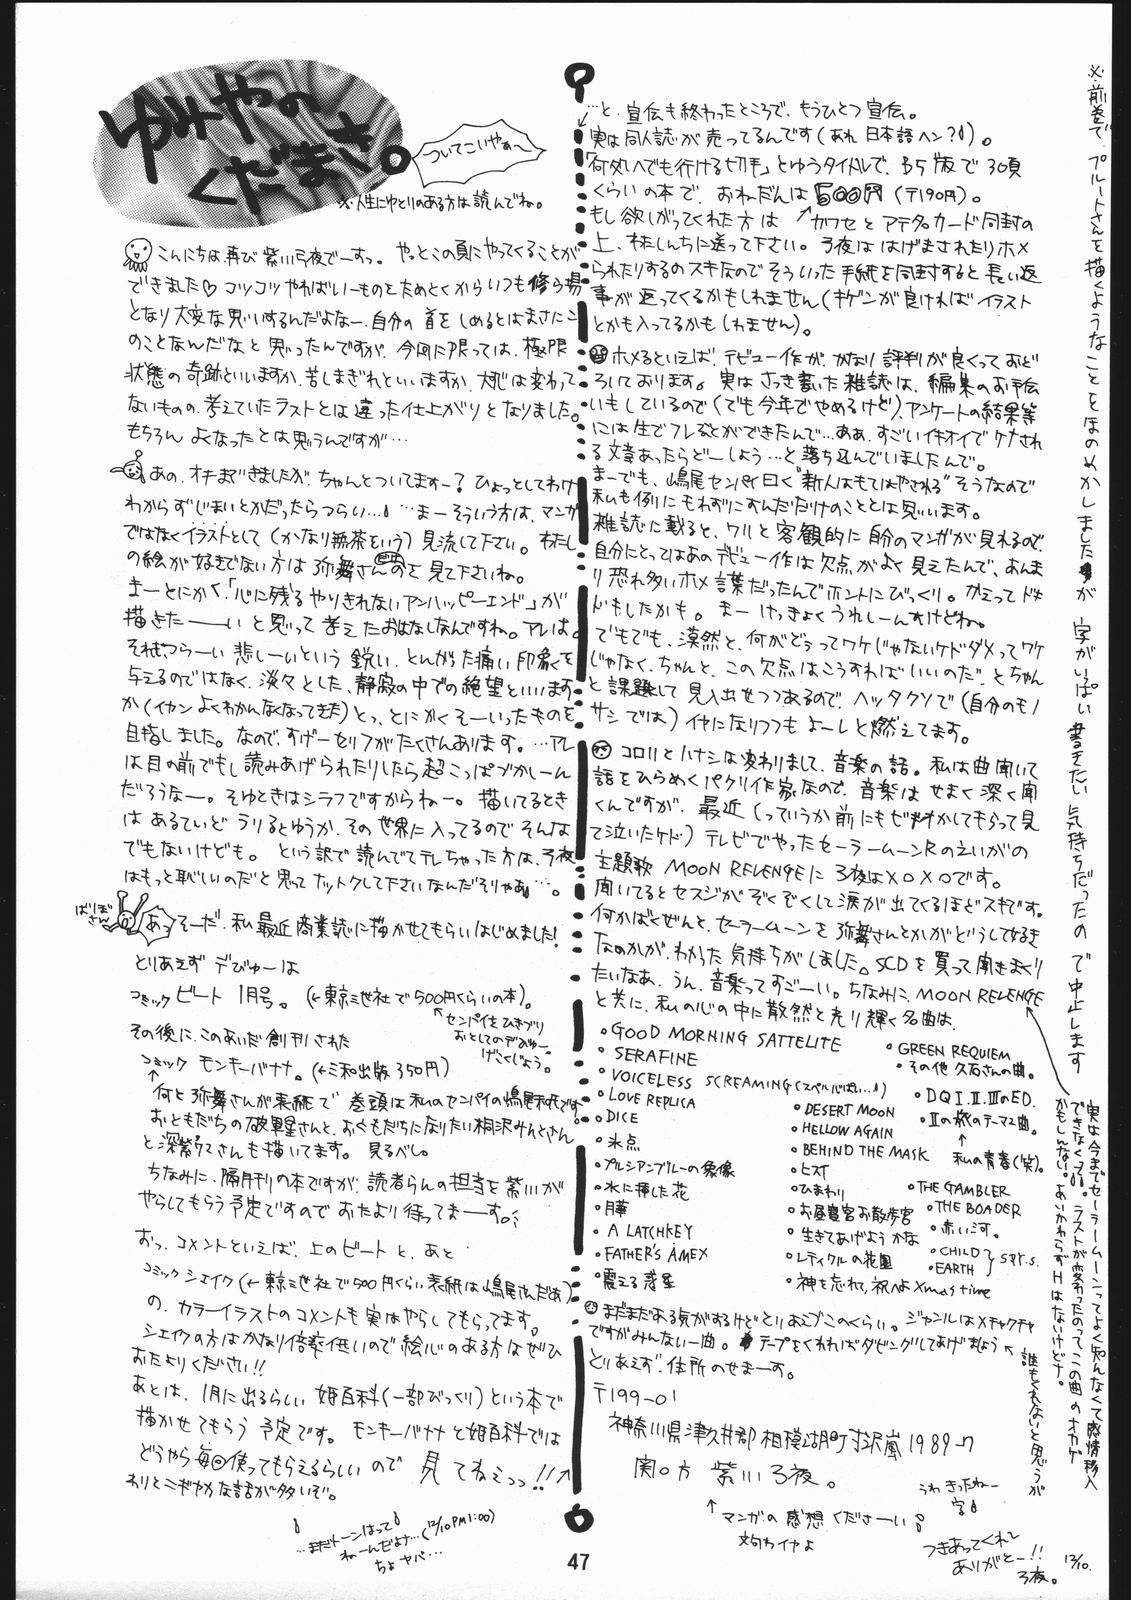 ゆみやの
くだまき。
ついてこいやぁ〜
※人生にゆとりのある方は読んでね。
こんにちは、再び紫川弓夜でーすっ。やっとこの頁にやってくることが
できました♡コツコツやればいーものをためとくからいつも修ら場
となり大変な思いするんだよなー。自分の首をしめるとはまさにこ
のことなんだなと思ったんですが、今回に限っては、極限
状態の奇跡といいますか、苦しまぎれといいますか、大すじは変わって
ないものの、考えていたラストとは違った仕上がりとなりました。
もちろんよくなったとは思うんですが…
あの、オチまできましたが、ちゃんとついてますー?ひょっとしてわけ
わからずじまいとかだったらつらい…。…まーそういう方は、マンガ
ではなくイラストとして(かなり無茶をいう)見流して下さい。わたし
の絵が好きでない方は弥舞さんのを見て下さいね。
まーとにかく、「心に残るやりきれないアンハッピーエンド」が
描きたーーいと思って考えたおはなしなんですね。アレは。
それも、つらーい悲しーいという鋭い、とんがった痛い印象を
与えるのではなく、淡々とした、静寂の中での絶望といいます
か(イカンよくわかんなくなってきた)とっ、とにかくそーいったものを
目指しました。なので、すげーセリフがたくさんあります。…アレ
は目の前でもし読みあげられたりしたら超こっぱづかしーん
だろうなー。そゆときはシラフですからねー。描いてるとき
はあるていどラリるとゆうか、その世界に入ってるのでそんな
でもないけども。という訳で読んでてテレちゃった方は、弓夜
はもっと恥しいのだと思ってナットクして下さいなんだそりゃあ…。
ばりぼさん
あっそーだ、私最近商業誌に描かせてもらいはじめました!
とりあえずデびゅーは
コミックビート1月号。(←東京三世社で500円くらいの本)。
センパイをひきづり
おとしてのデびゅー。
げこくじょう。
その後に、このあいだ創刊された
コミックモンキーバナナ。(←三和出版350円)
何と弥舞さんが表紙で巻頭は私のセンパイの嶋尾和氏です。
おともだちの破軍星さんと、おともだちになりたい相沢みんとさん
と深紫ワスさんも描いてます。見るべし。
ちなみに、隔月刊の本ですが、読者らんの担当を紫川が
やらしてもらう予定ですのでおたより待ってまーす。
おっ、コメントといえば、上のビートと、あと
コミックシェイク(←東京三世社で500円くらい表紙は嶋尾さんだぁ)
の、カラーイラストのコメントも実はやらしてもらってます。
シェイクの方はかなり倍率低いので絵心のある方はぜひ
おたよりください!!
あとは、1月に出るらしい姫百科(一部びっくり)という本で
描かせてもらう予定です。モンキーバナナと姫百科では
どうやら毎回使ってもらえるらしいので見てねえっっ!!
わりとニギやかな話が多いぞ。
…まだトーンはって
ねーんだよナ…(12/10PM1:00)
ちょヤバ…
…と、宣伝も終わったところで、もうひとつ宣伝。
実は同人誌が売ってるんです(あれ日本語ヘン?)。
「何処へでも行ける切手」とゆうタイトルで、B5版で30頁
くらいの本で、おねだんは500円(〒190円)。
もし欲しがってくれた方はカワセとアテ名カード同封の
上、わたしんちに送って下さい。弓夜ははげまされたりホメ
られたりするのスキなのでそういった手紙を同封すると長い返
事が返ってくるかもしれません(キゲンが良ければイラスト
とかも入ってるかもしれません)。
ホメるといえば、デビュー作が、かなり評判が良くっておど
ろいております。実はさっき書いた雑誌は、編集のお手伝
いもしているので(でも今年でやめるけど)、アンケートの結果等
には生でフレることができたんで…ああ、すごいイキオイでケナされ
る文章あったらどーしよう…と落ち込んでいましたんで。
まーでも、嶋尾センパイ曰く"新人はもてはやされる"そうなので
私も例にもれずにすんだだけのこととは思います。
雑誌に載ると、ワリと客観的に自分のマンガが見れるので、
自分にとってはあのデビュー作は欠点がよく見えたんで、あんま
り恐れ多いホメ言葉だったんでホントにびっくり。かえってドキ
ドキもしたかも。まーけっきょくうれしーんすけどね。
でもでも、漠然と、何がどうってワケじゃないケドダメってワケ
じゃなく、ちゃんと、この欠点はこうすればいいのだ、とちゃん
と課題として見入出せつつあるので、ヘッタクソで(自分のモノ
サシでは)イヤになりつつもよーしと燃えてます。
コロリとハナシは変わりまして、音楽の話。私は曲聞いて
話をひらめくパクリ作家なので、音楽はせまく深く聞
くんですが、最近(っていうか前にもビデオかしてもらって見
て泣いたケド)テレビでやったセーラームーンRのえいがの
主題歌MOON REVENGEに弓夜はXOXOです。
聞いてるとセスジがぞくぞくして涙が出てくるほどスキです。
何かばくぜんと、セーラームーンを弥舞さんとかがどうして好き
なのかが、わかった気持ちがしました。SCDを買って聞きまくり
たいなあ。うん、音楽ってすごーい。ちなみに、MOON REVENGE
と共に、私の心の中に散然と光り輝く名曲は、
•GOOD MORNING SATTELITE
•SERAFINE
•VOICELESS SCREAMING(スペル心ぱい…)
•LOVE REPLICA
•DICE
•氷点
•プルシアンブルーの肖像
•水に挿した花
•月華
•A LATCHKEY
•FATHER'S AMEX
•震える惑星
•DESERT MOON
•HELLOW AGAIN
•BEHIND THE MASK
•ヒズ
•ひまわり
•お昼寝宮お散歩宮
•生きてあげようかな
•レティクルの花園
•神を忘れて、祝へよXmas time
•GREEN REQUIEM
•その他久石さんの曲。
•DQⅠ.Ⅱ.ⅢのED.
•Ⅱの旅のテーマ2曲。
私の青春(笑)。
•THE GAMBLER
•THE BOADER
•赤い河。
•CHILD
•EARTH
まだまだある気がするけどとりあえずこのくらい。ジャンルはメチャクチャ
ですがみんないー曲。テープをくれればダビングしてあげましょう
誰もくれないと思うが
とりあえず、住所のせまーす。
〒199-01
神奈川県津久井郡相模湖町寸沢嵐1989-7
関口方 紫川弓夜。
マンガの感想くださーい
文句わイヤよ
うわきったねー
字
つきあってくれて
ありがとー!!
弓夜。
12/10.
※前巻で、プルートさんを描くようなことをほのめかしましたが字がいっぱい書きたい気持ちだったので中止します
実は今までセーラームーンってよく知んなくて感情移入
できなくって。ラストが変ったのってこの曲のオカゲ
かもしんない。あいかわらずHはないけどナ。
47